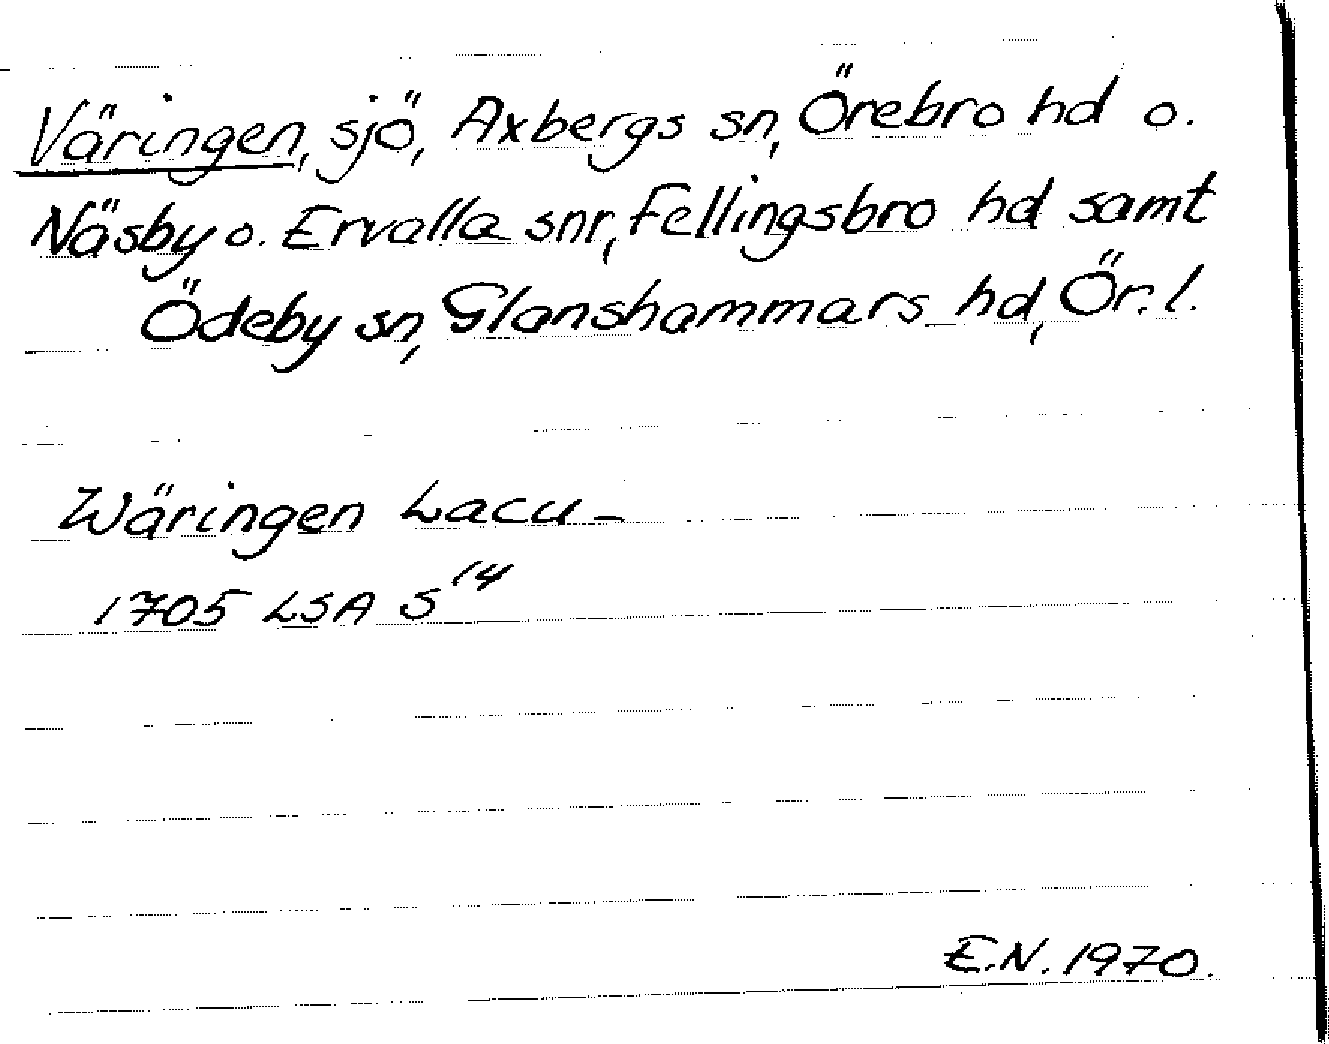 Väringen, sjö, Axbergs sn, Örebro hd o.
Näsby o. Ervalla snr, Fellingsbro hd samt
Ödeby sn, Glanshammars hd, Ör. l.
Wäringen Lacu -
1705 LSA S 14
E.N. 1970.